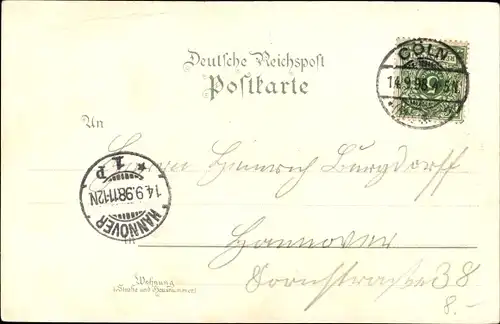 Deutsche Reichspost
Postkarte
CÖLN
14.9.98
An
Herrn Heinrich Burgdorff
* 1 P
14.9.98.11-12N
HANNOVER
Hannover
Wohnung
(Straße und Hausnummer)
Cornstrasse 38
8.-